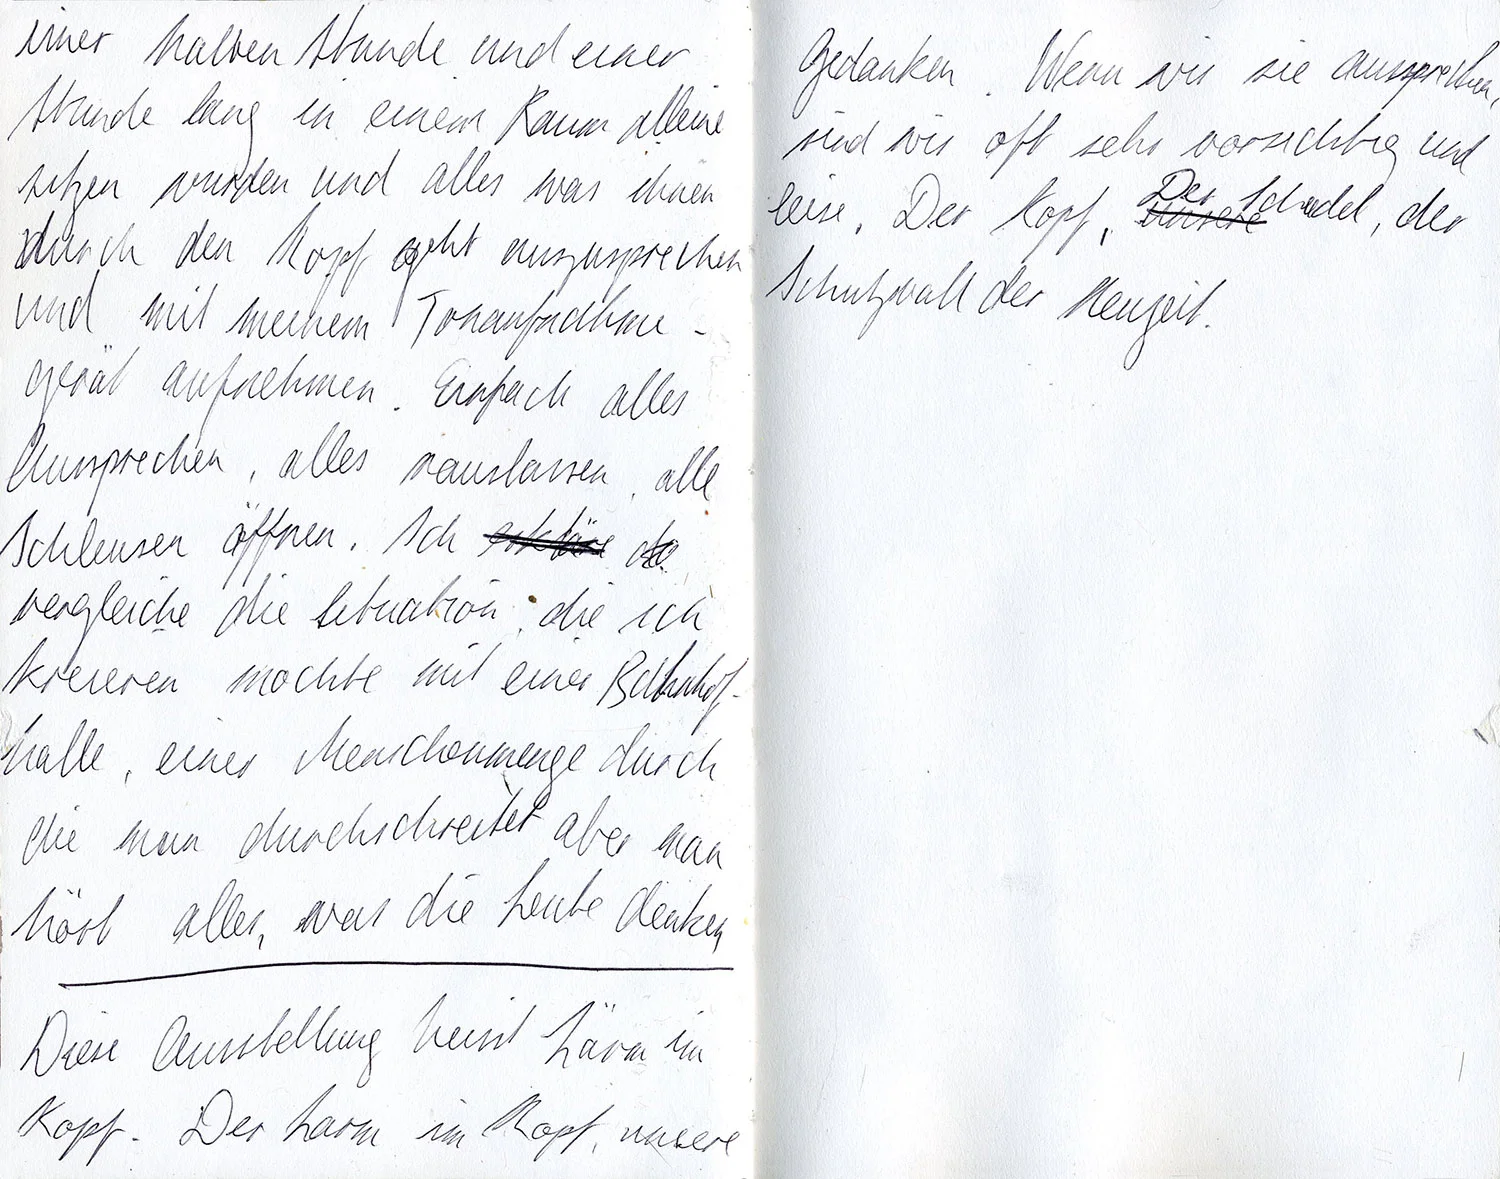 einer halben Stunde und einer
Stunde lang in einem Raum alleine
sitzen wurden und alles was ihnen
durch den Kopf geht auszusprechen
und mit meinem Tonaufnahme-
gerät aufnehmen. Einfach alles
Aussprechen, alles rauslassen, alle
Schleusen öffnen. Ich erkläre
vergleiche die Situation, die ich
kreieren mochte mit einer Bahnhof-
halle, einer Menschenmenge durch
die man durchschreitet aber man
hört alles, was die Leute denken
Diese Ausstellung heisst Lärm im
Kopf. Der Larm im Kopf, unsere
Gedanken. Wenn wir sie aussprechen,
sind wir oft sehr vorsichtig und
leise. Der Kopf, unsere Der Schädel, der
Schutzwall der Neuzeit.